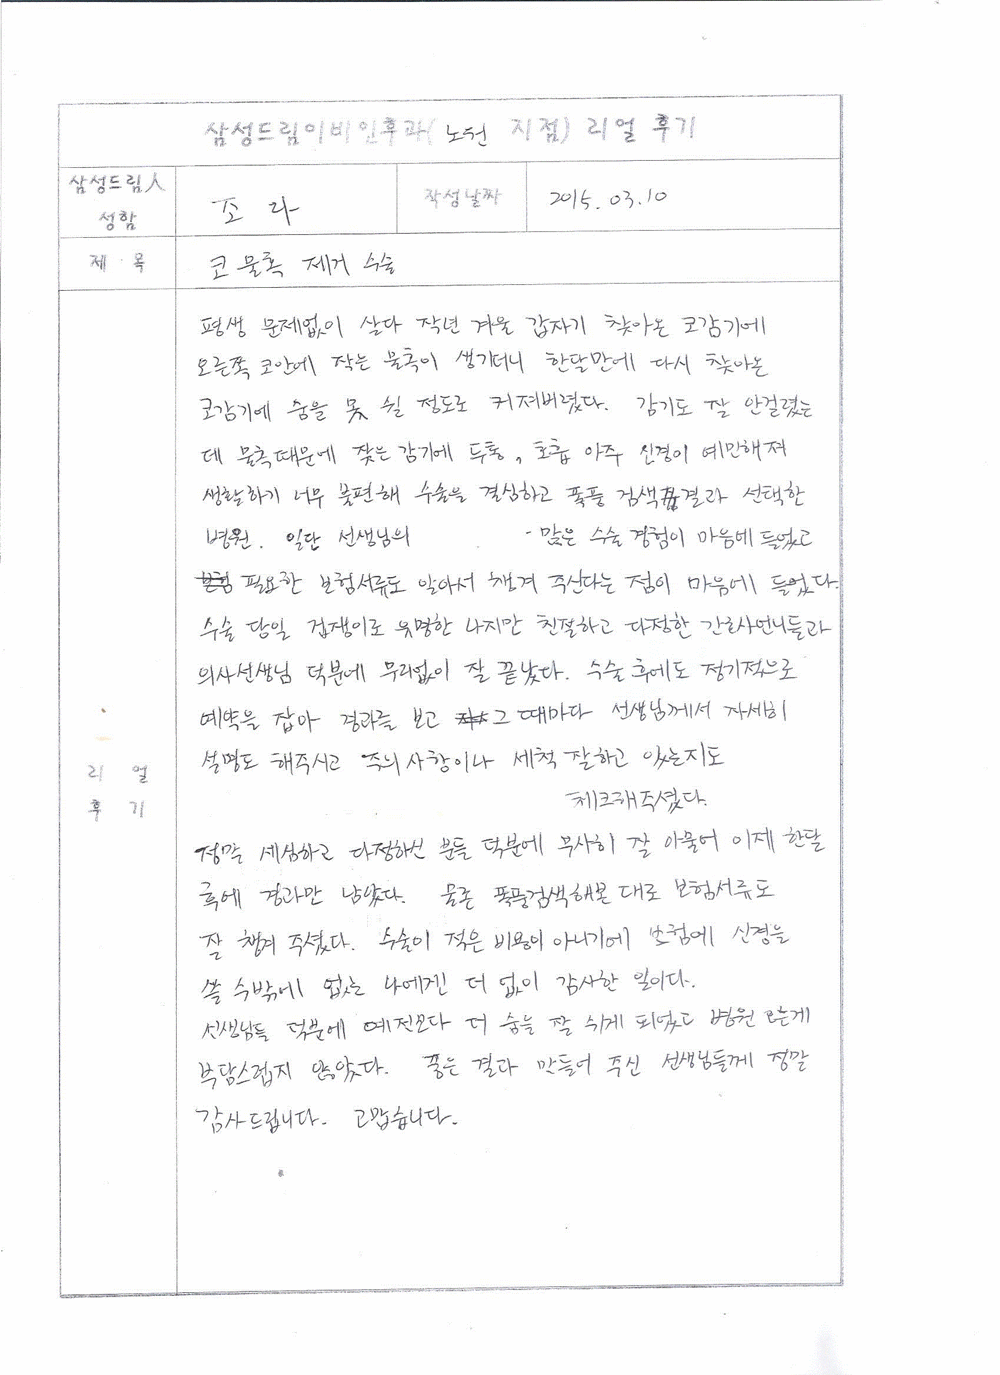 삼성드림이비인후과( 노원 지점) 리얼 후기
삼성드림人 성함
조 라
작성날짜
2015.03.10
제 목
코 물혹 제거 수술
리 얼
후 기
평생 문제없이 살다 작년 겨울 갑자기 찾아온 코감기에
오른쪽 코안에 작는 물혹이 생기더니 한달만에 다시 찾아온
코감기에 숨을 못 쉴 정도로 커져버렸다. 감기도 잘 안걸렸는
데 물혹때문에 잦은 감기에 두통, 호흡 아주 신경이 예민해져
생활하기 너무 불편해 수술을 결심하고 폭풍 검색 결과 선택한
병원. 일단 선생님의 많은 수술 경험이 마음에 들었고
필요한 보험서류도 알아서 챙겨 주신다는 점이 마음에 들었다.
수술 당일 겁쟁이로 유명한 나지만 친절하고 다정한 간호사언니들과
의사선생님 덕분에 무리없이 잘 끝났다. 수술 후에도 정기적으로
예약을 잡아 경과를 보고 그 때마다 선생님께서 자세히
설명도 해주시고 주의사항이나 세척 잘하고 있는지도
체크해주셨다.
정말 세심하고 다정하신 분들 덕분에 무사히 잘 아물어 이제 한달
후에 경과만 남았다. 물론 폭풍검색해본 대로 보험서류도
잘 챙겨 주셨다. 수술이 적은 비용이 아니기에 보험에 신경을
쓸 수밖에 없는 나에겐 더 없이 감사한 일이다.
선생님들 덕분에 예전보다 더 숨을 잘 쉬게 되었고 병원 오는게
부담스럽지 않았다. 좋은 결과 만들어 주신 선생님들께 정말
감사드립니다. 고맙습니다.